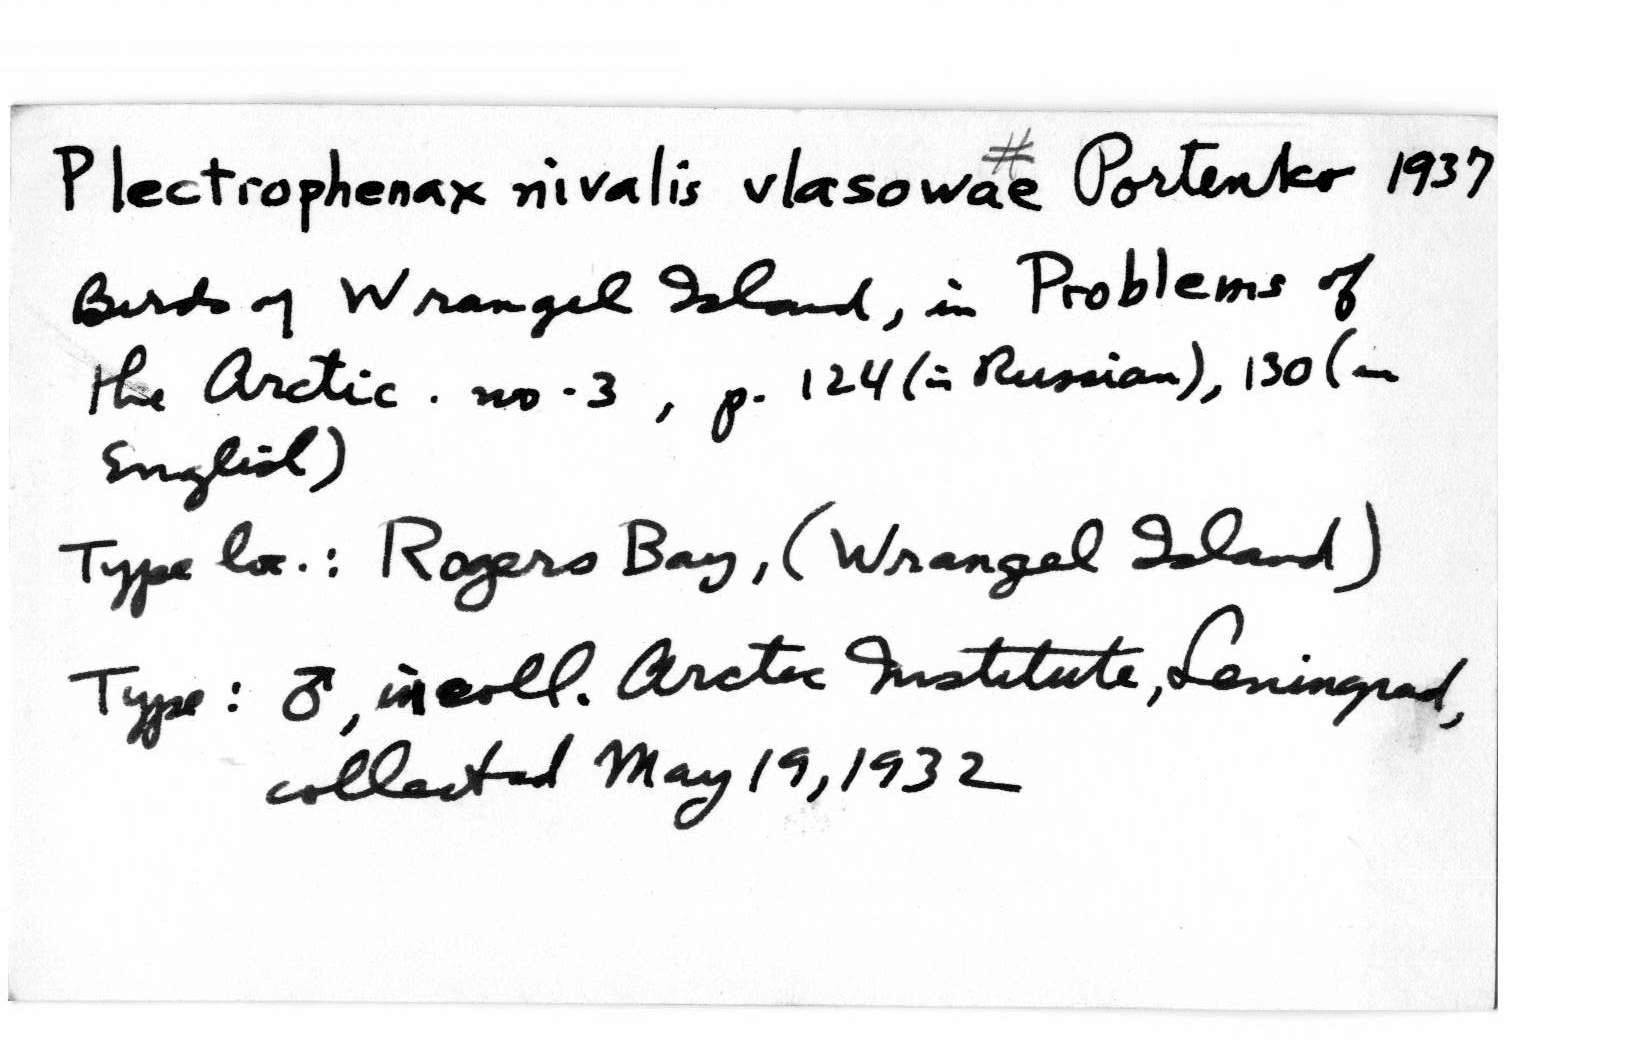 #
Plectrophenax nivalis vlasowae Portenko 1937
Birds of Wrangel Island, in Problems of
the Arctic. no. 3, p. 124 (in Russian), 130 (in
English)
Type loc.: Rogers Bay, (Wrangel Island)
Type: ♂, in coll. Arctic Institute, Leningrad,
collected May 19, 1932